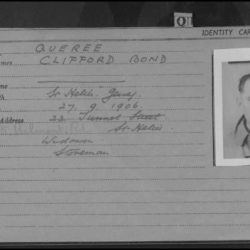 IDENTITY CA
QUEREE
mes CLIFFORD BOND
me
St Helier Jersey.
th 27. 9. 1906.
Address 22 Tunnel Street
St. Helier
Widower
Storeman